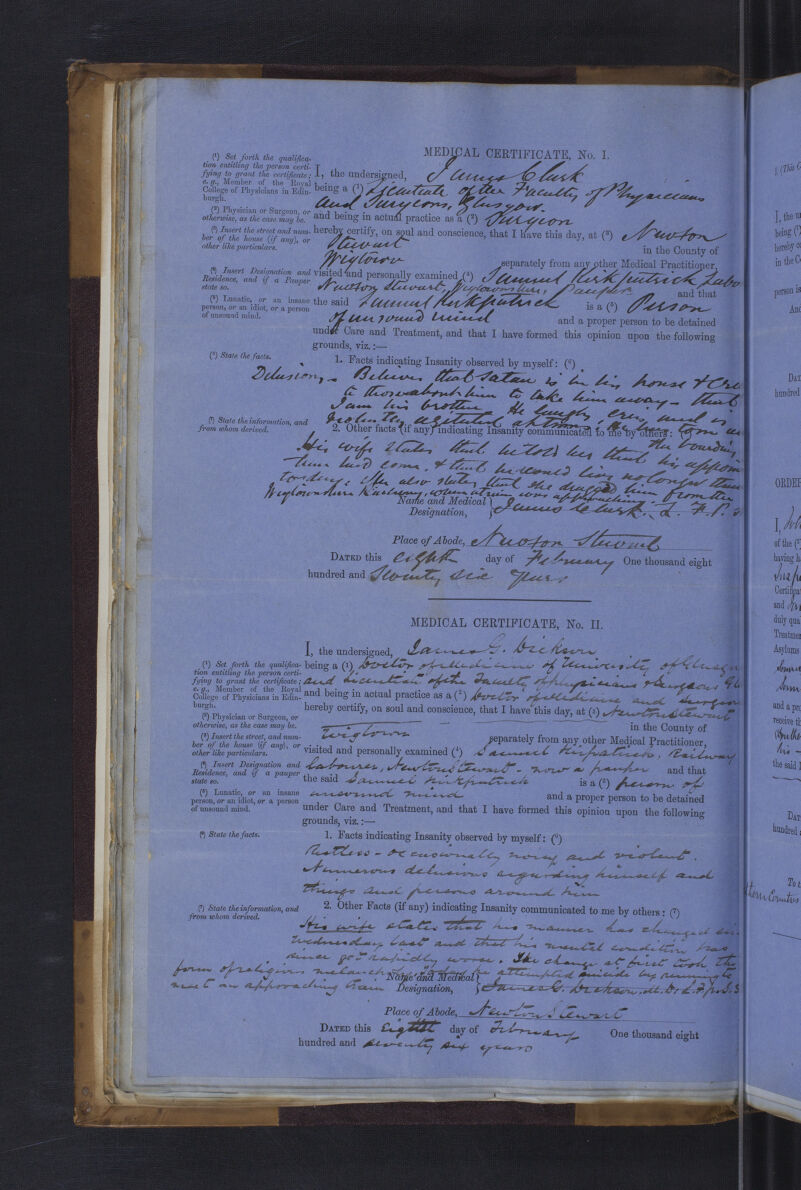 MEDICAL CERTIFICATE, No. I.
(¹) Set forth the qualifica-
tion entitling the person certi-
fying to grant the certificate;
e.g., Member of the Royal
College of Physicians in Edin-
burgh.
(²) Physician or Surgeon, or
otherwise, as the case may be.
(³) Insert the street and num-
ber of the house (if any), or
other like particulars.
(⁴) Insert Designation and
Residence, and if a Pauper
state so.
(⁵) Lunatic, or an insane
person, or an idiot, or a person
of unsound mind.
(⁶) State the facts.
(⁷) State the information, and
from whom derived.
I, the undersigned, James Clark
being a (¹) Licentiate of the Faculty of Physicians
and Surgeons, Glasgow.
and being in actual practice as a (²) Surgeon
hereby certify, on soul and conscience, that I have this day, at (³) Newton
Stewart in the County of
Wigtown separately from any other Medical Practitioner,
visited and personally examined (⁴) Samuel Kirkpatrick Labo
Newton Stewart, Wigtownshire, Pauper and that
the said Samuel Kirkpatrick is a (⁵) Person
of unsound mind and a proper person to be detained
under Care and Treatment, and that I have formed this opinion upon the following
grounds, viz.:—
1. Facts indicating Insanity observed by myself: (⁶)
Delusions - Believes that Satan is in his house &
to those about him to take him away - that
I am his brother. He laughs, cries and is
violently agitated at times. He has torn
2. Other facts (if any) indicating Insanity communicated to me by others: (⁷)
the
His wife states that he told her that his
time had come, & that he could live no longer than
today. She also states that she dragged him from the
Wigtownshire Railway, when a train was approaching.
Name and Medical
Designation, } James Clark. L. F. P.
Place of Abode, Newton Stewart
DATED this eighth day of February One thousand eight
hundred and Seventy six years
MEDICAL CERTIFICATE, No. II.
(¹) Set forth the qualifica-
tion entitling the person certi-
fying to grant the certificate;
e.g., Member of the Royal
College of Physicians in Edin-
burgh.
(²) Physician or Surgeon, or
otherwise, as the case may be.
(³) Insert the street, and num-
ber of the house (if any), or
other like particulars.
(⁴) Insert Designation and
Residence, and if a pauper
state so.
(⁵) Lunatic, or an insane
person, or an idiot, or a person
of unsound mind.
(⁶) State the facts.
(⁷) State the information, and
from whom derived.
I, the undersigned, James G. Dickson
being a (¹) Doctor of Medicine of University of Glasg
and Licentiate of the Faculty of Physicians & Surgeons Gl
and being in actual practice as a (²) Doctor of Medicine and Surgeon
hereby certify, on soul and conscience, that I have this day, at (³) Newtonstewart
in the County of
Wigtown separately from any other Medical Practitioner,
visited and personally examined (⁴) Samuel Kirkpatrick, Railway
labourer, Newtonstewart - now a pauper and that
the said Samuel Kirkpatrick is a (⁵) person of
unsound mind and a proper person to be detained
under Care and Treatment, and that I have formed this opinion upon the following
grounds, viz.:—
1. Facts indicating Insanity observed by myself: (⁶)
Restless - occasionally noisy and violent.
Numerous delusions regarding himself and
things and persons around him
2. Other Facts (if any) indicating Insanity communicated to me by others: (⁷)
His wife states that his manner has changed sin
Wednesday last and that his mental condition has
since got rapidly worse. The change at first took the
form of religious attempted suicide by running to
meet an approaching train
Name and Medical
Designation, } James G. Dickson. M.D. L.F.P.S.
Place of Abode, Newton Stewart
DATED this Eighth day of February One thousand eight
hundred and seventy six years
1. (This
I, the u
being (
hereby c
in the C
person is
And
DAT
hundred
ORDER
I,
of the (
having h
Certifica
and
duly qua
Treatmen
Asylums
and a pr
receive th
his -
the said
DAT
hundred
To